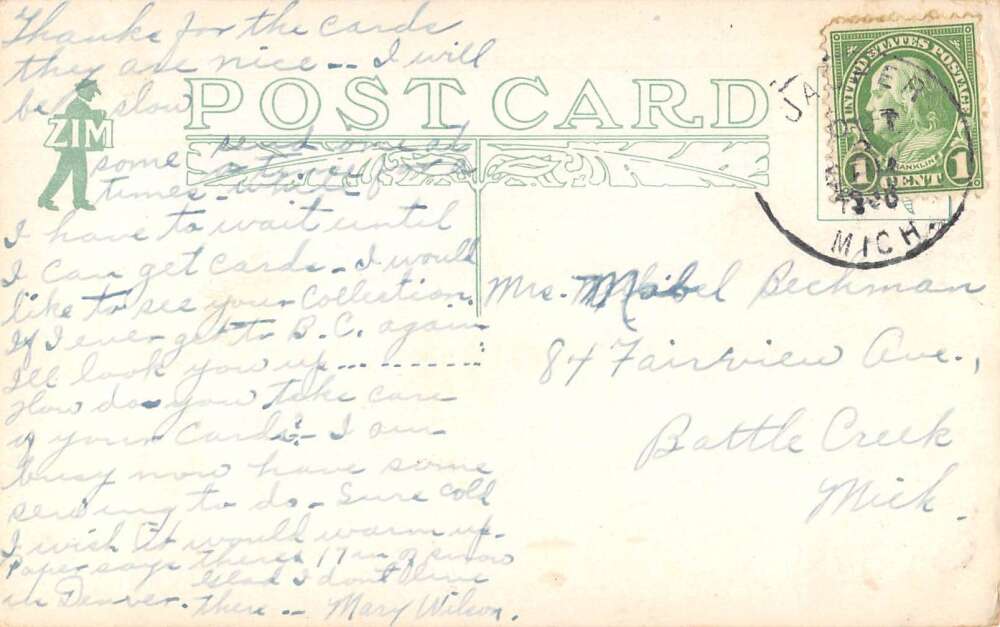 Thanks for the cards
they are nice -- I will
be slow
POST CARD
ZIM
some send one at
times - while
I have to wait until
I can get cards - I would
like to see your collection.
If I ever get to B.C. again
I'll look you up
How do you take care
of your cards? - I am
busy now have some
sewing to do - Sure cold
I wish it would warm up -
Paper says theres 17 in of snow
in Denver. Glad I don't live
there -- Mary Wilson.
UNITED STATES POSTAGE
FRANKLIN
1 CENT 1
MICH.
Mrs. Mabel Beckman
84 Fairview Ave.,
Battle Creek
Mich.